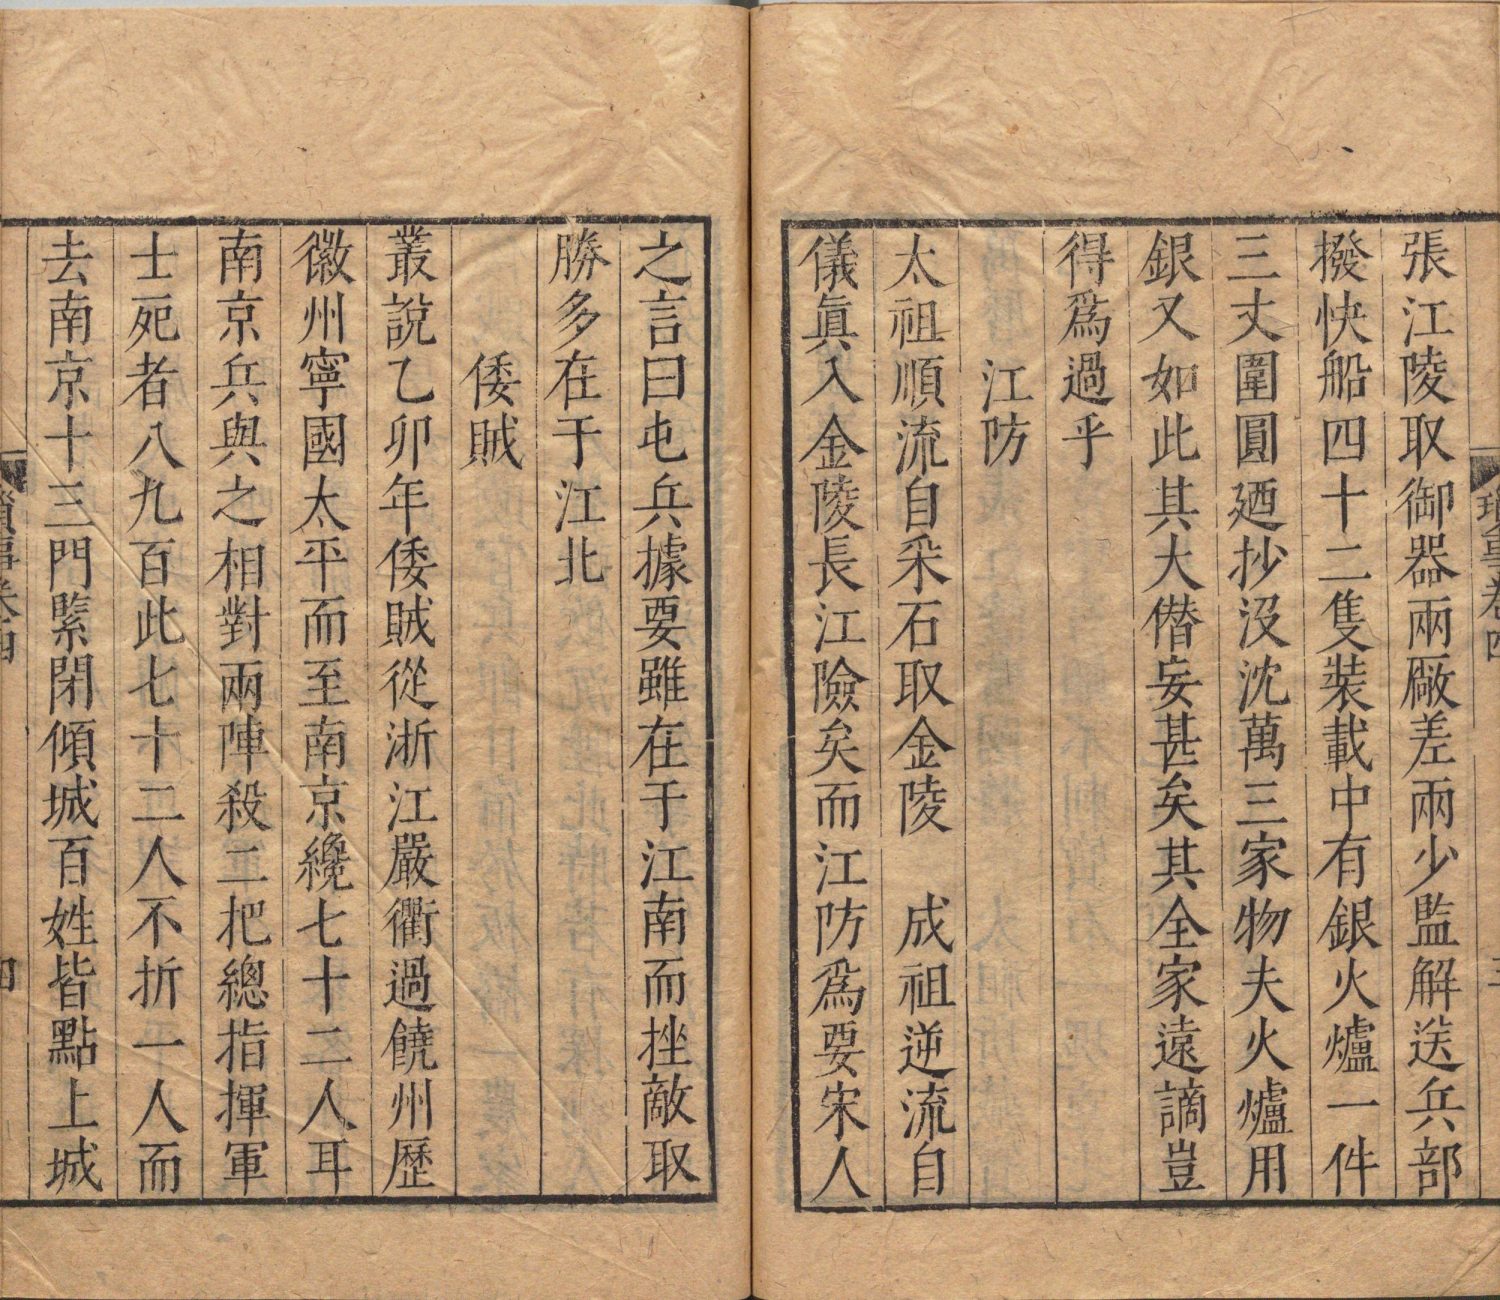 張江陵取御器兩厰差兩少監解送兵部
撥快船四十二隻裝載中有銀火爐一件
三丈圍圓廼抄没沈萬三家物夫火爐用
銀又如此其大僣妄甚矣其全家遠謫豈
得爲過乎
江防
太祖順流自采石取金陵　成祖逆流自
儀眞入金陵長江險矣而江防爲要宋人
之言曰屯兵據要雖在于江南而挫敵取
勝多在于江北
倭賊
叢說乙卯年倭賊從浙江嚴衢過饒州歷
徽州寧國太平而至南京纔七十二人耳
南京兵與之相對兩陣殺二把總指揮軍
士死者八九百此七十二人不折一人而
去南京十三門緊閉傾城百姓皆點上城
瑣事卷四
四